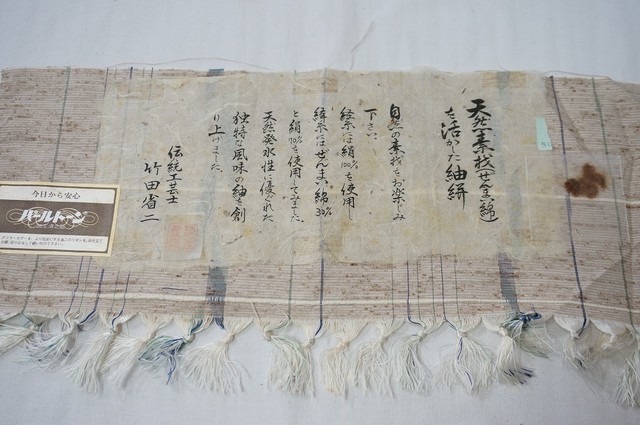 天然素材(ぜんまい綿)
を活かした紬絣
自然の素材をお楽しみ
下さい。
経糸は絹100%を使用し
緯糸はぜんまい綿30%
と絹70%を使用してみました。
天然発水性に優ぐれた
独特な風味の紬を創
り上げました。
伝統工芸士
竹田省二
今日から安心
パールトーン